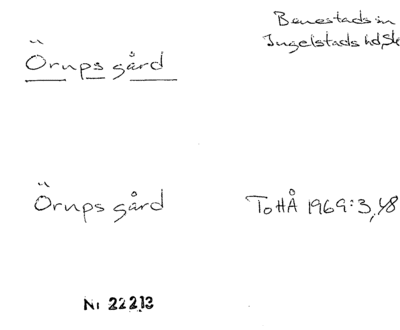 Benestads sn
Ingelstads hd, Sk
Örups gård
Örups gård
ToHÅ 1969:3, 48
Nr 22213